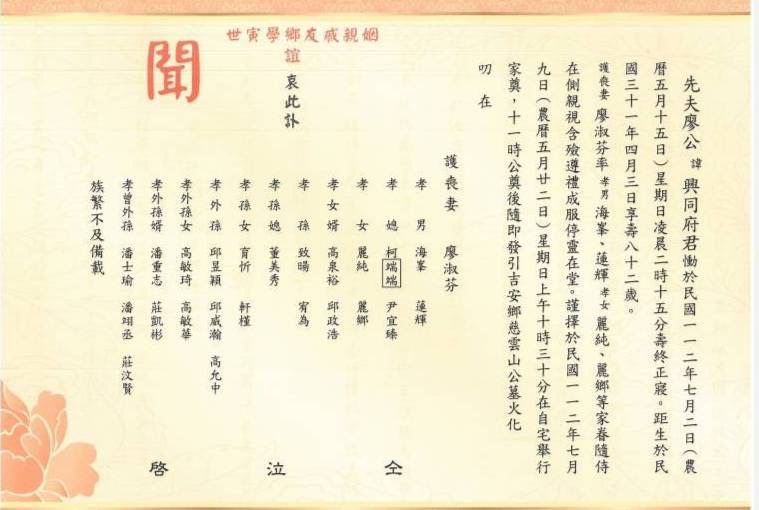 先夫廖公 諱 興同府君慟於民國一一二年七月二日（農
曆五月十五日）星期日凌晨二時十五分壽終正寢。距生於民
國三十一年四月三日享壽八十二歲。
護喪妻 廖淑芬率 孝男 海峯、蓮輝 孝女 麗純、麗鄉等家眷隨侍
在側親視含殮遵禮成服停靈在堂。謹擇於民國一一二年七月
九日（農曆五月廿二日）星期日上午十時三十分在自宅舉行
家奠，十一時公奠後隨即發引吉安鄉慈雲山公墓火化
叨 在
姻親戚友鄉學寅世
誼
哀此訃
聞
護喪妻 廖淑芬
孝男 海峯 蓮輝
孝媳 柯端端 尹宜臻
孝女 麗純 麗鄉
孝女婿 高泉裕 邱政浩
孝孫 致暘 宥為
孝孫媳 董美秀
孝孫女 育忻 軒槿
孝外孫 邱昱穎 邱威瀚 高允中
孝外孫女 高敏琦 高敏華
孝外孫婿 潘重志 莊凱彬
孝曾外孫 潘士瑜 潘翊丞 莊汶賢
族繁不及備載
仝 泣 啓